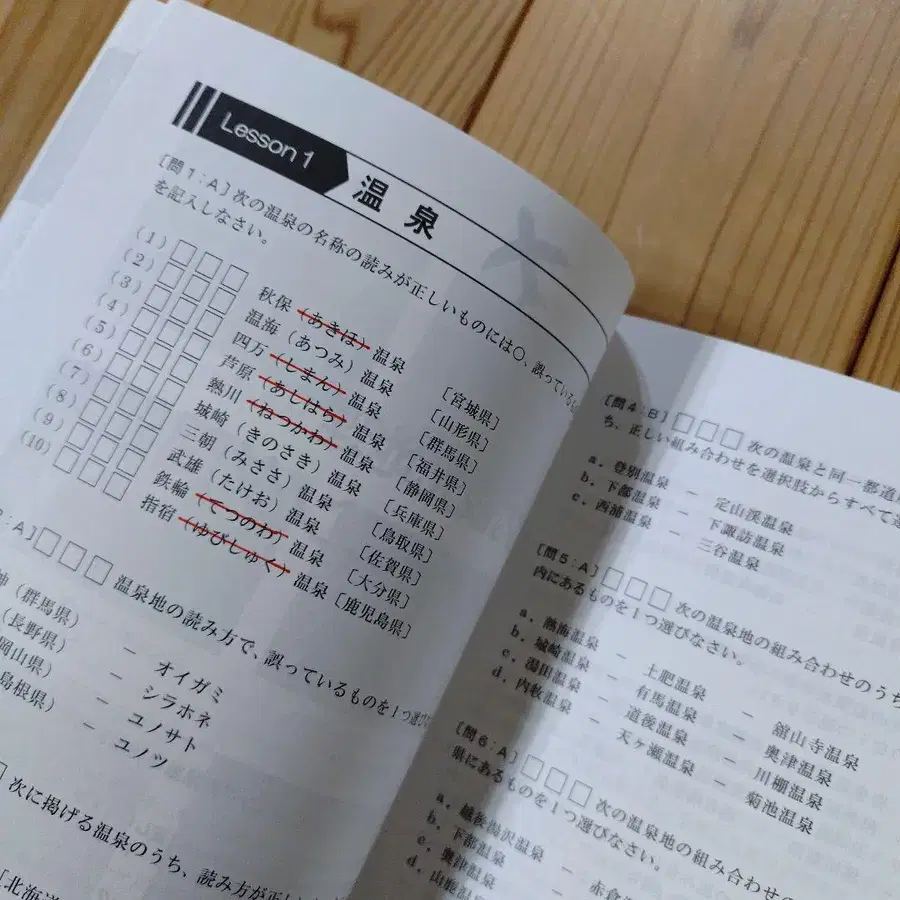 Lesson 1
温泉
［問1：A］次の温泉の名称の読みが正しいものには○、誤っているも
を記入しなさい。
(1) □□□ 秋保（あきほ）温泉 ［宮城県］
(2) □□□ 温海（あつみ）温泉 ［山形県］
(3) □□□ 四万（しまん）温泉 ［群馬県］
(4) □□□ 芦原（あしはら）温泉 ［福井県］
(5) □□□ 熱川（ねつかわ）温泉 ［静岡県］
(6) □□□ 城崎（きのさき）温泉 ［兵庫県］
(7) □□□ 三朝（みささ）温泉 ［鳥取県］
(8) □□□ 武雄（たけお）温泉 ［佐賀県］
(9) □□□ 鉄輪（てつのわ）温泉 ［大分県］
(10) □□□ 指宿（ゆびしゅく）温泉 ［鹿児島県］
：A］□□□ 温泉地の読み方で、誤っているものを1つ選び
（群馬県） － オイガミ
（長野県） － シラホネ
岡山県） － ユノサト
島根県） － ユノツ
次に掲げる温泉のうち、読み方が正し
［北海道
［問4：B］□□□ 次の温泉と同一都道
ち、正しい組み合わせを選択肢からすべて選
a．登別温泉 － 定山渓温泉
b．下部温泉 － 下諏訪温泉
c．西浦温泉 － 三谷温泉
［問5：A］□□□ 次の温泉地の組み合わせのうち
内にあるものを1つ選びなさい。
a．熱海温泉 － 土肥温泉 － 舘山寺温泉
b．城崎温泉 － 有馬温泉 － 奥津温泉
c．湯田温泉 － 道後温泉 － 川棚温泉
d．内牧温泉 － 天ヶ瀬温泉 － 菊池温泉
［問6：A］□□□ 次の温泉地の組み合わせの
県にあるものを1つ選びなさい。
a．越後湯沢温泉 － 赤倉
b．下部温泉
c．奥津温泉
d．山鹿温泉